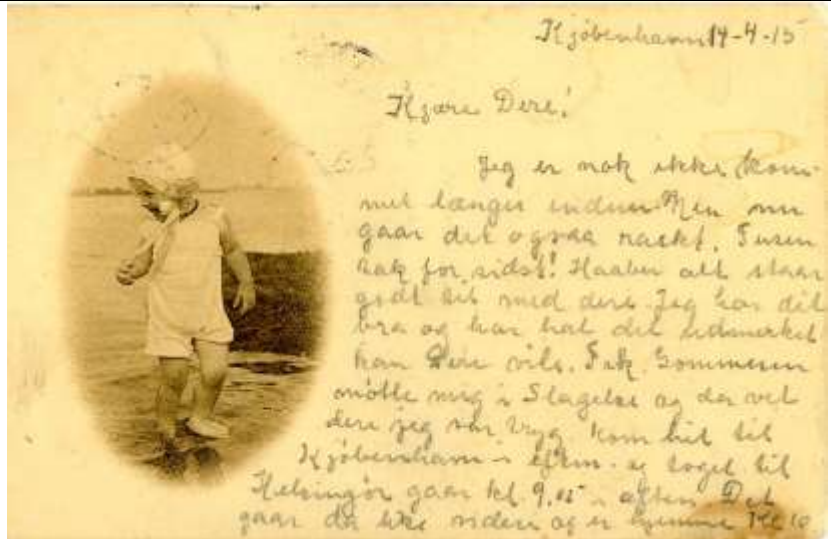 Kjøbenhavn 14-4-15
Kjære Dere!
Jeg er nok ikke kom-
met længer endnu. Men nu
gaar det ogsaa raskt. Tusen
tak for sidst! Haaber alt staar
godt til med dere. Jeg har det
bra og har hat det udmerket
kan Dere vite. Frk. Gommesen
møtte mig i Slagelse og da vet
dere jeg var tryg. Kom hit til
Kjøbenhavn i efterm. og toget til
Helsingør gaar kl 9.15 i aften. Det
gaar da like videre og er hjemme Kl 10